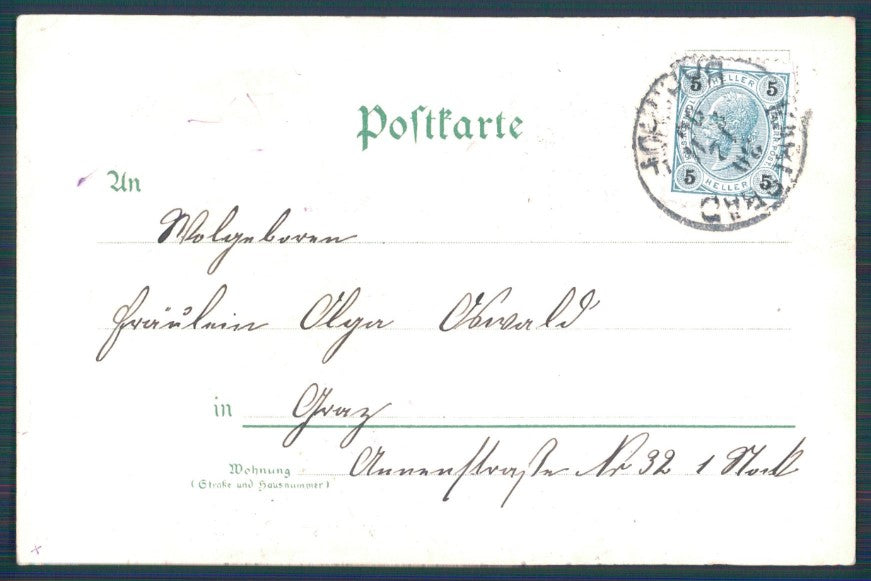 Postkarte
5 HELLER 5
5 HELLER 5
An
Wolgeboren
Fräulein Olga Oswald
in Graz
Wohnung Annenstraße Nr 32 1 Stock
(Straße und Hausnummer)